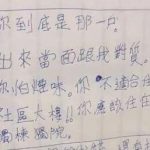 你到底是那一只
出來當面跟我對質
你怕煙味.你不適合住
社區大樓!!你應該住在
獨棟